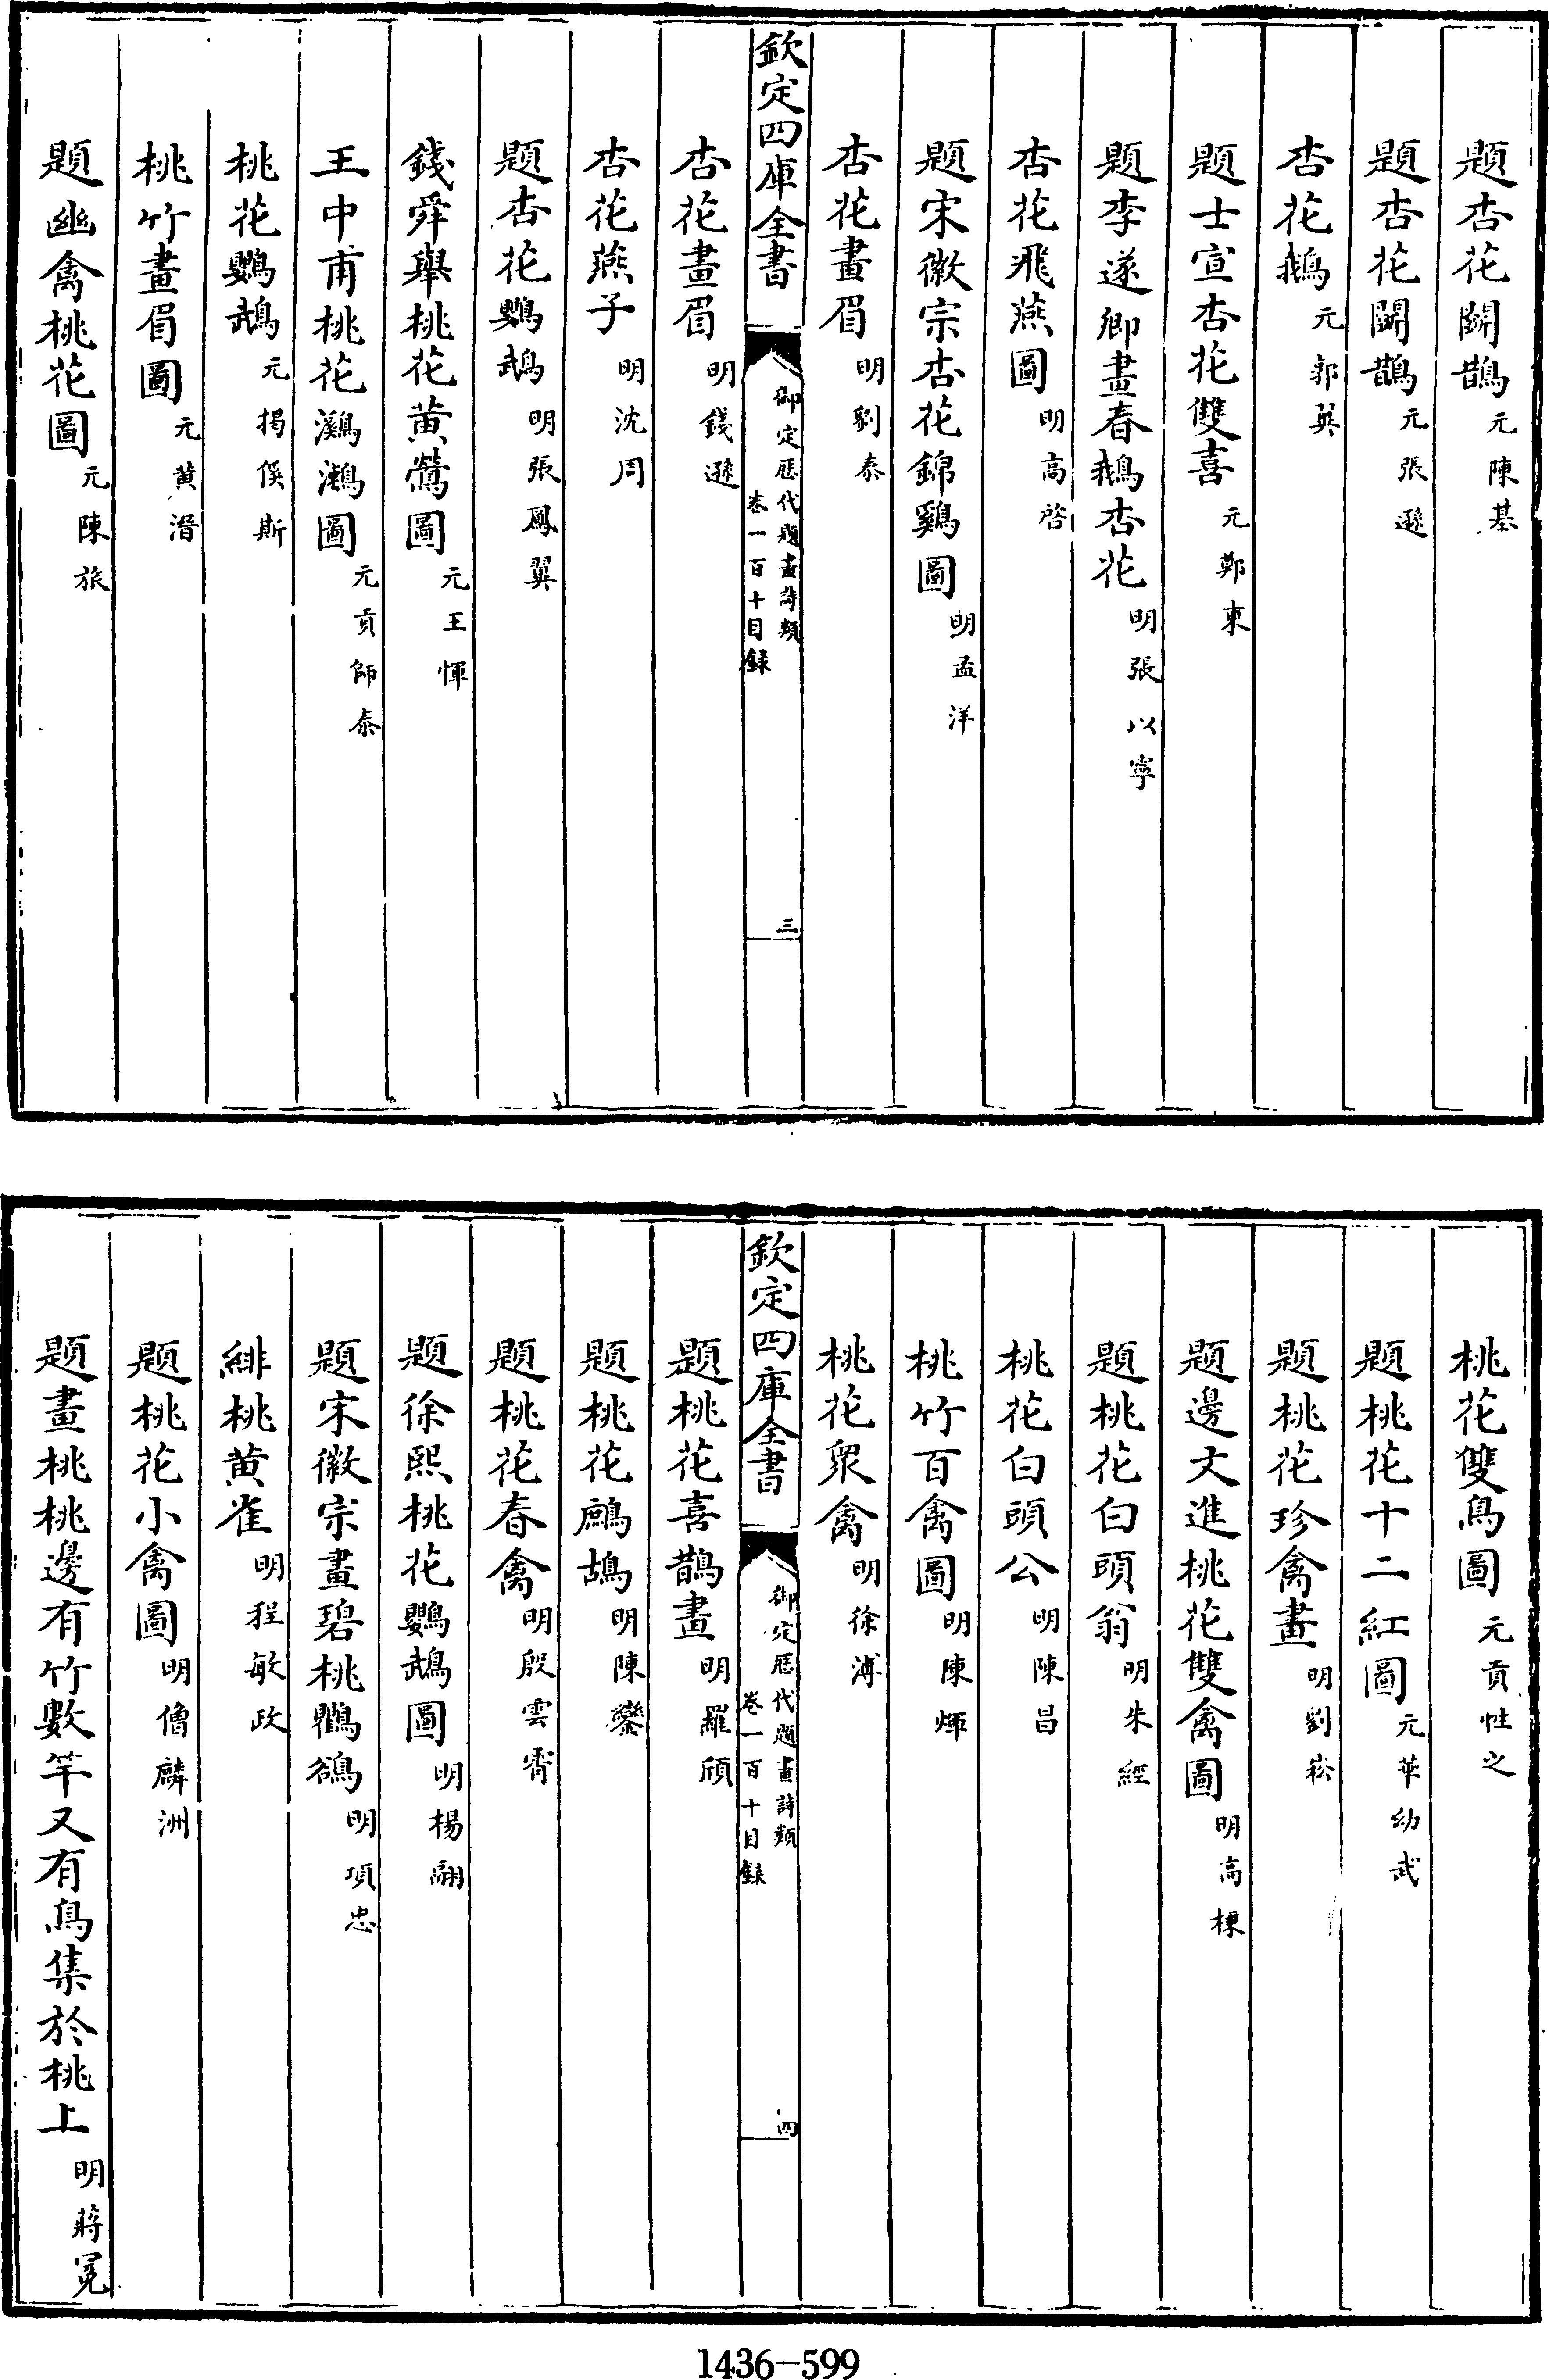 題杏花鬬鵲元陳基
題杏花鬬鵲元張遜
杏花鵝元郭翼
題士宣杏花雙喜元鄭東
題李遂卿畫春鵝杏花明張以寧
杏花飛燕圖明高啓
題宋徽宗杏花錦鷄圖明孟洋
杏花畫眉明劉泰
欽定四庫全書
御定歴代題畫詩類
卷一百十目録
三
杏花畫眉明錢遜
杏花燕子明沈周
題杏花鸚鵡明張鳳翼
錢舜舉桃花黄鶯圖元王惲
王中甫桃花鸂鶒圖元貢師泰
桃花鸚鵡元揭傒斯
桃竹畫眉圖元黄溍
題幽禽桃花圖元陳旅
桃花雙鳥圖元貢性之
題桃花十二紅圖元華幼武
題桃花珍禽畫明劉崧
題邊文進桃花雙禽圖明高棅
題桃花白頭翁明朱經
桃花白頭公明陳昌
桃竹百禽圖明陳煇
桃花衆禽明徐溥
欽定四庫全書
御定歴代題畫詩類
卷一百十目録
四
題桃花喜鵲畫明羅頎
題桃花鷓鴣明陳鑾
題桃花春禽明殷雲霄
題徐熙桃花鸚鵡圖明楊翮
題宋徽宗畫碧桃鸜鵒明項忠
緋桃黄雀明程敏政
題桃花小禽圖明僧麟洲
題畫桃桃邊有竹數竿又有鳥集於桃上明蔣冕
1436-599